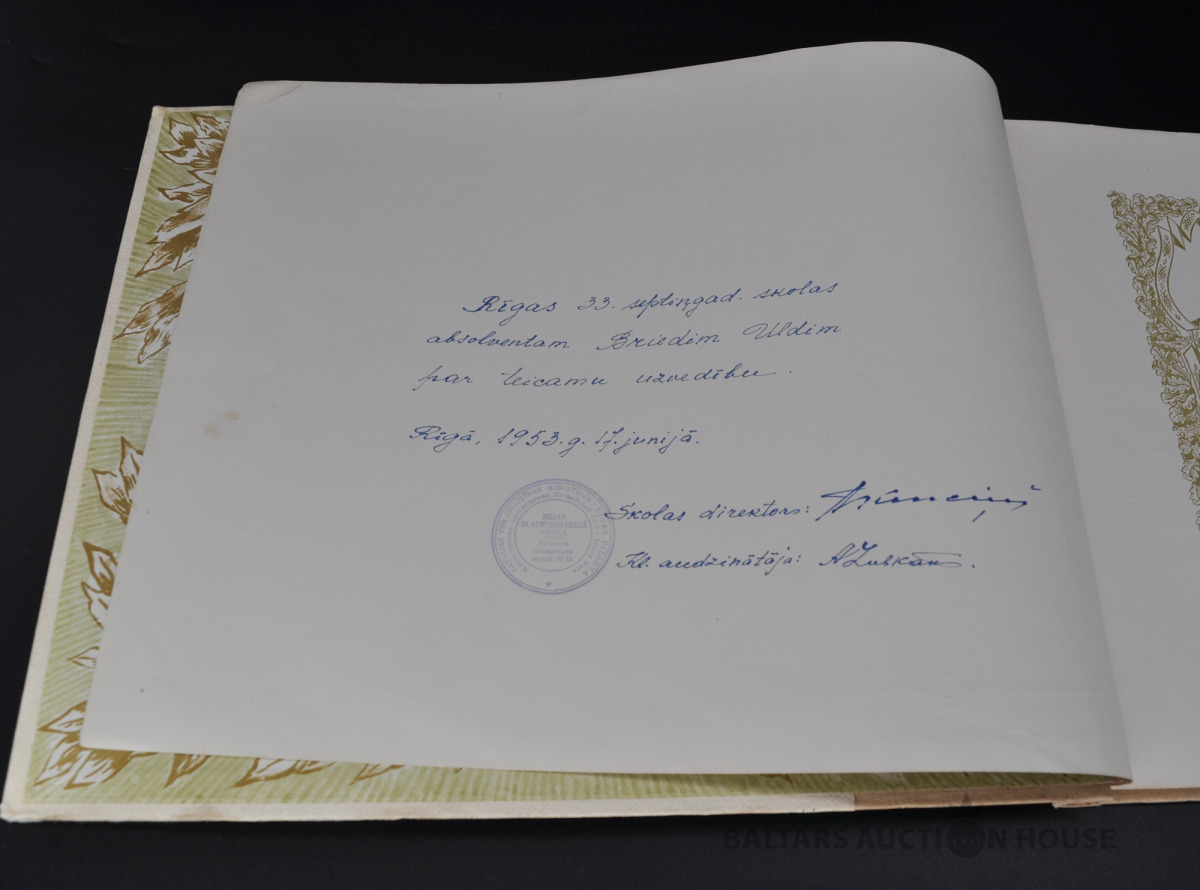 Rīgas 33. septiņgad. skolas
absolventam Briedim Uldim
par teicamu uzvedību.
Rīgā, 1953.g. 17. junijā.
Skolas direktors:
Kl. audzinātāja: AZubkāns.
RĪGAS
BALTARS AUCTION HOUSE